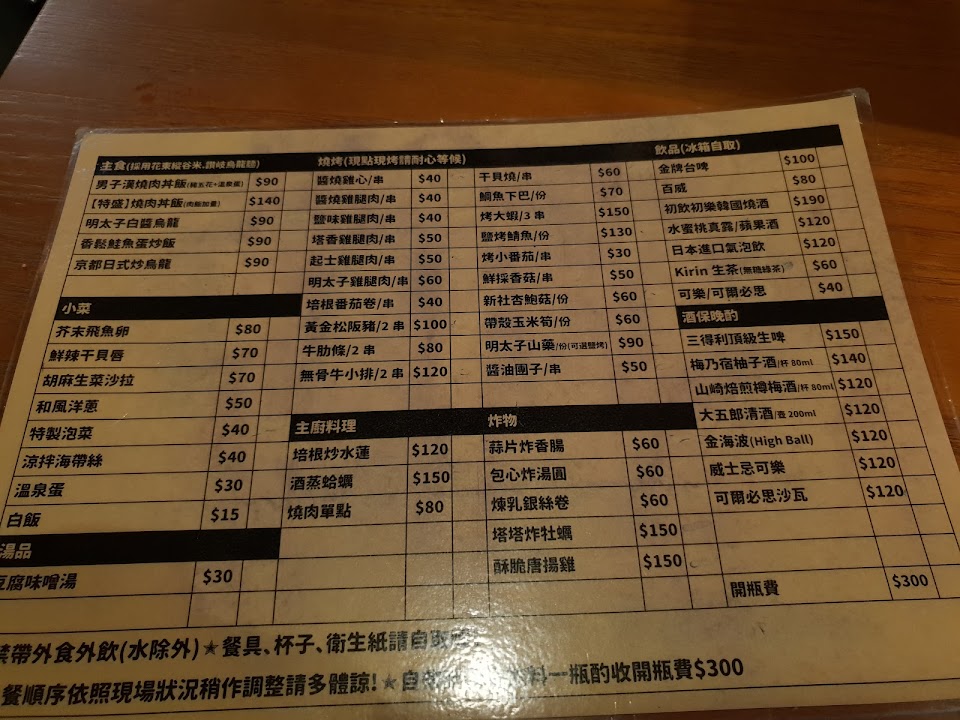 主食(採用花東縱谷米、讚岐烏龍麵)
男子漢燒肉丼飯(豬五花+溫泉蛋) $90
[特盛]燒肉丼飯(肉飯加量) $140
明太子白醬烏龍 $90
香鬆鮭魚蛋炒飯 $90
京都日式炒烏龍 $90
小菜
芥末飛魚卵 $80
鮮辣干貝唇 $70
胡麻生菜沙拉 $70
和風洋蔥 $50
特製泡菜 $40
涼拌海帶絲 $40
溫泉蛋 $30
白飯 $15
湯品
豆腐味噌湯 $30
燒烤(現點現烤請耐心等候)
醬燒雞心/串 $40
醬燒雞腿肉/串 $40
鹽味雞腿肉/串 $40
塔香雞腿肉/串 $50
起士雞腿肉/串 $50
明太子雞腿肉/串 $60
培根番茄卷/串 $40
黃金松阪豬/2 串 $100
牛肋條/2 串 $80
無骨牛小排/2 串 $120
干貝燒/串 $60
鯛魚下巴/份 $70
烤大蝦/3 串 $150
鹽烤鯖魚/份 $130
烤小番茄/串 $30
鮮採香菇/串 $50
新社杏鮑菇/份 $60
帶殼玉米筍/份 $60
明太子山藥/份(可選鹽烤) $90
醬油團子/串 $50
主廚料理
培根炒水蓮 $120
酒蒸蛤蠣 $150
燒肉單點 $80
炸物
蒜片炸香腸 $60
包心炸湯圓 $60
煉乳銀絲卷 $60
塔塔炸牡蠣 $150
酥脆唐揚雞 $150
飲品(冰箱自取)
金牌台啤 $100
百威 $80
初飲初樂韓國燒酒 $190
水蜜桃真露/蘋果酒 $120
日本進口氣泡飲 $120
Kirin 生茶(無糖綠茶) $60
可樂/可爾必思 $40
酒保晚酌
三得利頂級生啤 $150
梅乃宿柚子酒/杯 80ml $140
山崎焙煎樽梅酒/杯 80ml $120
大五郎清酒/壺 200ml $120
金海波(High Ball) $120
威士忌可樂 $120
可爾必思沙瓦 $120
開瓶費 $300
禁帶外食外飲(水除外)★餐具、杯子、衛生紙請自取
餐順序依照現場狀況稍作調整請多體諒!★自 一瓶酌收開瓶費$300